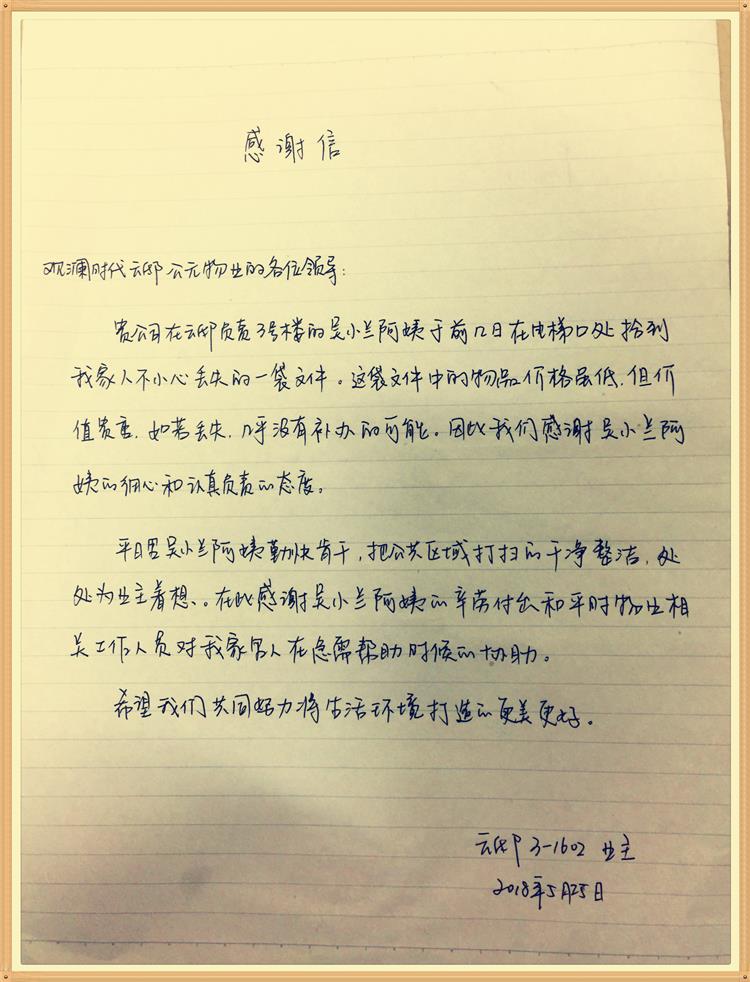 感谢信
观澜时代云邸公元物业的各位领导:
贵公司在云邸负责3号楼的吴小兰阿姨于前几日在电梯口处拾到
我家人不小心丢失的一袋文件。这袋文件中的物品价格虽低,但价
值贵重,如若丢失,几乎没有补办的可能。因此我们感谢吴小兰阿
姨的细心和认真负责的态度。
平日里吴小兰阿姨勤快肯干,把公共区域打扫的干净整洁,处
处为业主着想。在此感谢吴小兰阿姨的辛劳付出和平时物业相
关工作人员对我家家人在急需帮助时候的协助。
希望我们共同努力将生活环境打造的更美更好。
云邸3-1602 业主
2018年5月25日